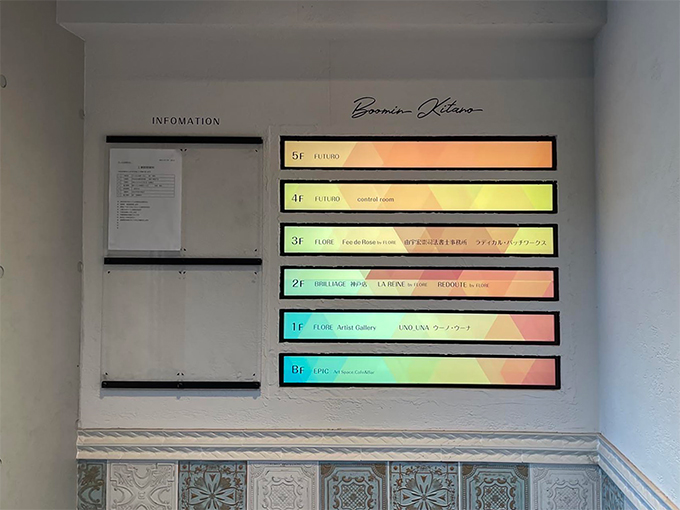 INFOMATION
Boomin Kitano
5F FUTURO
4F FUTURO control room
3F FLORE Fee de Rose by FLORE 由宇宏崇司法書士事務所 ラディカル・パッチワークス
2F BRILLIAGE 神戸店 LA REINE by FLORE REDOUTE by FLORE
1F FLORE Artist Gallery UNO_UNA ウーノ・ウーナ
BF EPIC Art Space Cafe&Bar